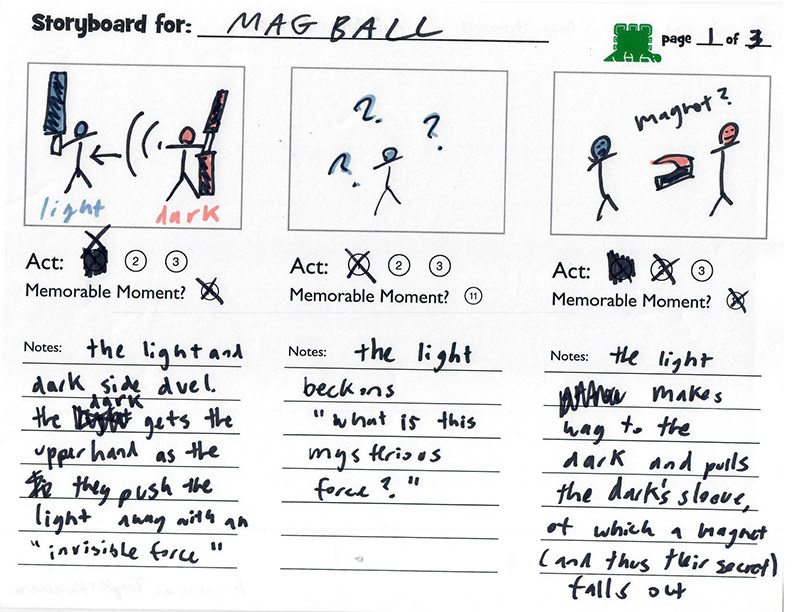 Storyboard for: MAG BALL
page 1 of 3
light
dark
?
?
?
magnet?
Act: 1 2 3
Memorable Moment?
Act: 1 2 3
Memorable Moment? 11
Act: 1 2 3
Memorable Moment?
Notes: the light and
dark side duel.
dark
the gets the
upper hand as the
they push the
light away with an
"invisible force"
Notes: the light
beckons
"what is this
mysterious
force?."
Notes: the light
makes
way to the
dark and pulls
the dark's sleeve,
of which a magnet
(and thus their secret)
falls out